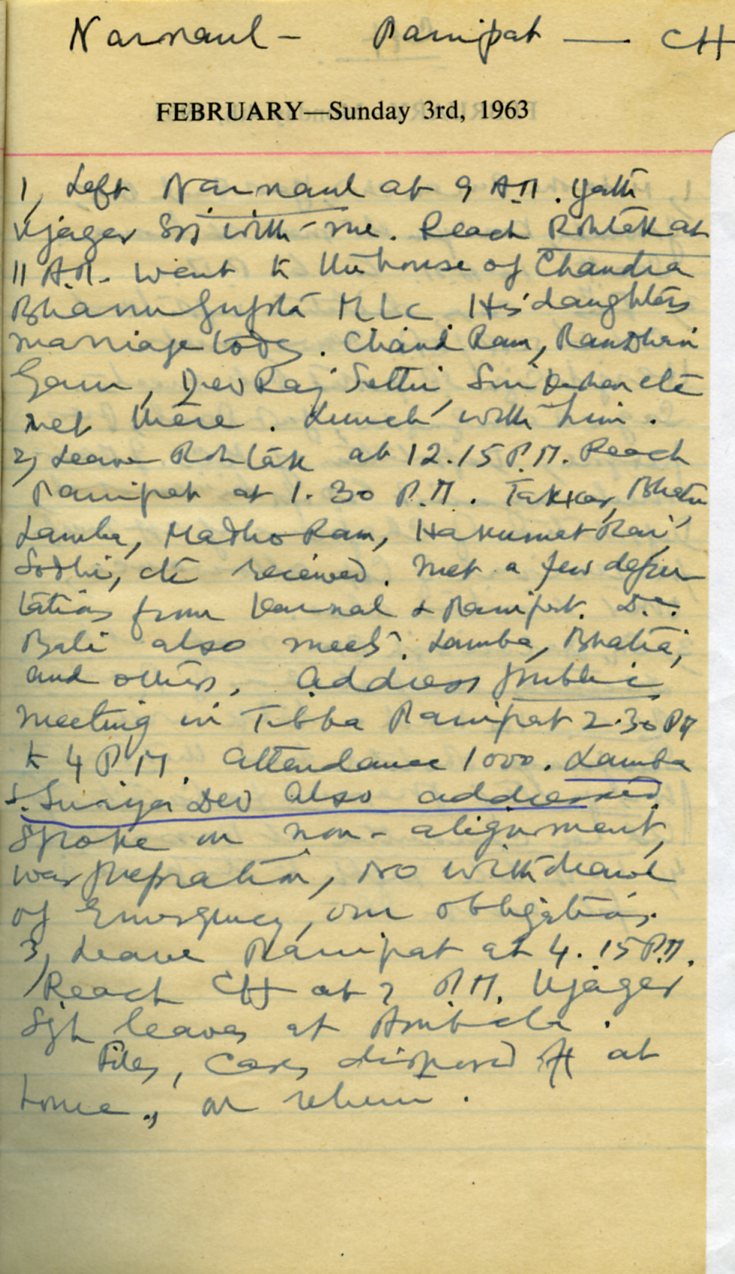 Narnaul - Panipat — CH
FEBRUARY—Sunday 3rd, 1963
1, Left Narnaul at 9 A.M.
Ujager with me. Reach Rohtak at
11 A.M. Went to the house of Chandra
Bhanu Gupta MLC His daughters
marriage today. Chand Ram,
Dev Raj Sethi, etc
met there. Lunch with him.
2, Leave Rohtak at 12.15 P.M. Reach
Panipat at 1.30 P.M. Takkar, Bhatia
Lamba, Madho Ram, Hakumat Rai,
Sodhi, etc received. Met a few depu
tations from Karnal & Panipat.
Bali also meets. Lamba, Bhatia,
and others. Address public
meeting in Tibba Panipat 2.30 PM
to 4 P.M. Attendance 1000. Lamba
S. Suraya Dev also addressed
Spoke on non-alignment,
war prepration, No withdrawl
of Emergency, our obligations.
3, Leave Panipat at 4.15 P.M.
Reach CH at 7 P.M. Ujager
Sgh leaves at Ambala.
Files, Cases disposed off at
home, on return.